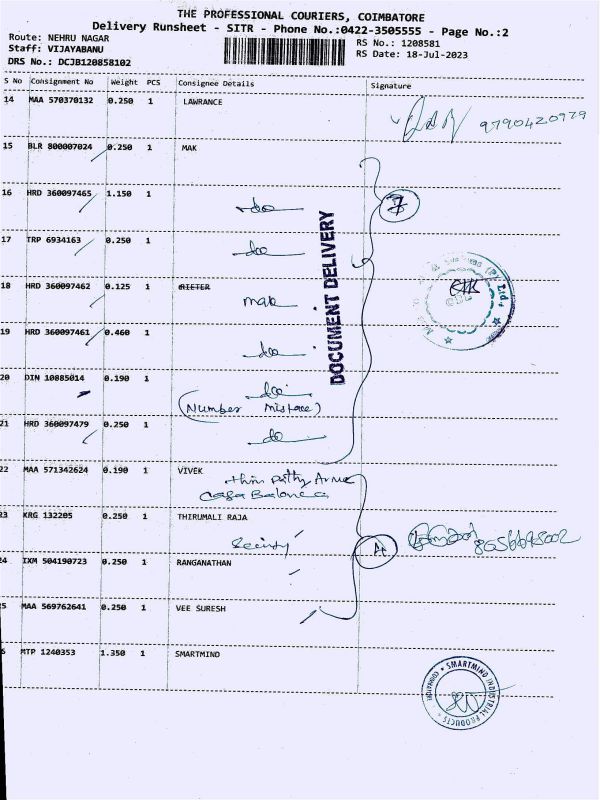 THE PROFESSIONAL COURIERS, COIMBATORE
Delivery Runsheet - SITR - Phone No.:0422-3505555 - Page No.:2
Route: NEHRU NAGAR RS No.: 1208581
Staff: VIJAYABANU RS Date: 18-Jul-2023
DRS No.: DCJB120858102
S No Consignment No Weight PCS Consignee Details Signature
14 MAA 570370132 0.250 1 LAWRANCE 9790420979
15 BLR 800007024 0.250 1 MAK
16 HRD 360097465 1.150 1 do 7
17 TRP 6934163 0.250 1 do
18 HRD 360097462 0.125 1 RIETER
mak
19 HRD 360097461 0.460 1 do
20 DIN 10885014 0.190 1 do
(Number Mistace)
21 HRD 360097479 0.250 1 do
DOCUMENT DELIVERY
22 MAA 571342624 0.190 1 VIVEK
Casa
23 KRG 132205 0.250 1 THIRUMALI RAJA
24 IXM 504190723 0.250 1 RANGANATHAN
25 MAA 569762641 0.250 1 VEE SURESH
MTP 1240353 1.350 1 SMARTMIND
SMARTMIND INDUSTRIAL PRODUCTS
COIMBATORE